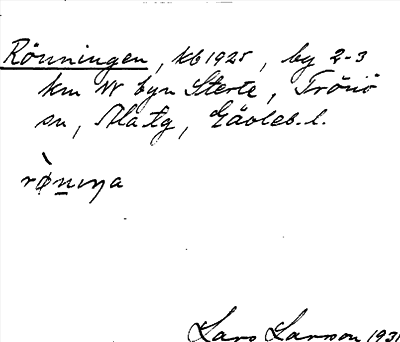 Rönningen, kb 1925, by 2-3
km NV byn Sterte, Trönö
sn, Ala tg, Gävleb. l.
rø̀nıŋa
Lars Larsson 1931